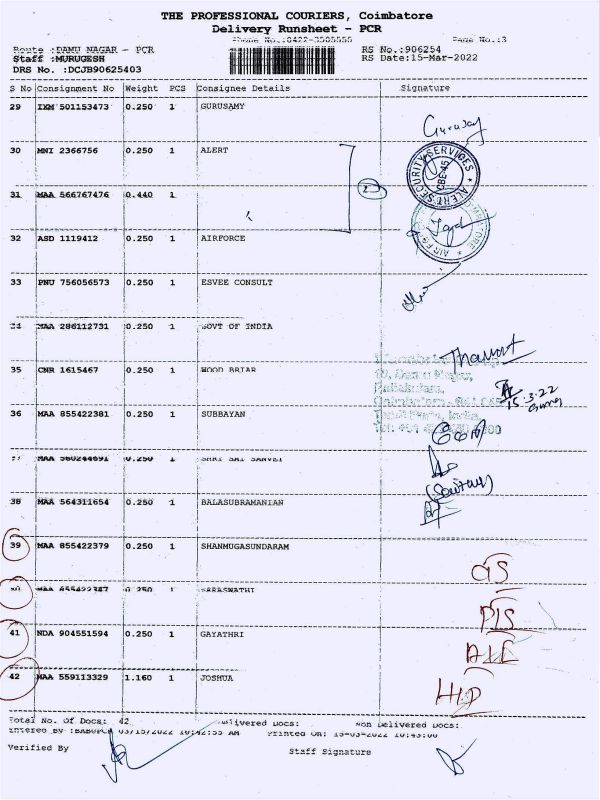 THE PROFESSIONAL COURIERS, Coimbatore
Delivery Runsheet - PCR
Phone No.:0422-3505555 Page No.:3
Route :DAMU NAGAR - PCR RS No.:906254
Staff :MURUGESH RS Date:15-Mar-2022
DRS No. :DCJB90625403
S No Consignment No Weight PCS Consignee Details Signature
29 IXM 501153473 0.250 1 GURUSAMY
30 MNI 2366756 0.250 1 ALERT
ALERT SECURITY SERVICES
CBE-45
2
31 MAA 566767476 0.440 1
32 ASD 1119412 0.250 1 AIRFORCE
33 PNU 756056573 0.250 1 ESVEE CONSULT
34 MAA 286112731 0.250 1 GOVT OF INDIA
35 CNR 1615467 0.250 1 WOOD BRIAR
15.3.22
36 MAA 855422381 0.250 1 SUBBAYAN
37 MAA 560244691 0.250 1 SHRI SAI SANVEI
38 MAA 564311654 0.250 1 BALASUBRAMANIAN
39 MAA 855422379 0.250 1 SHANMUGASUNDARAM
40 MAA 855422387 0.250 1 SARASWATHI
41 NDA 904551594 0.250 1 GAYATHRI
42 MAA 559113329 1.160 1 JOSHUA
Total No. Of Docs: 42 Delivered Docs: Non Delivered Docs:
Entered By :BABUPCR 03/15/2022 10:42:55 AM Printed On: 15-03-2022 10:43:00
Verified By Staff Signature